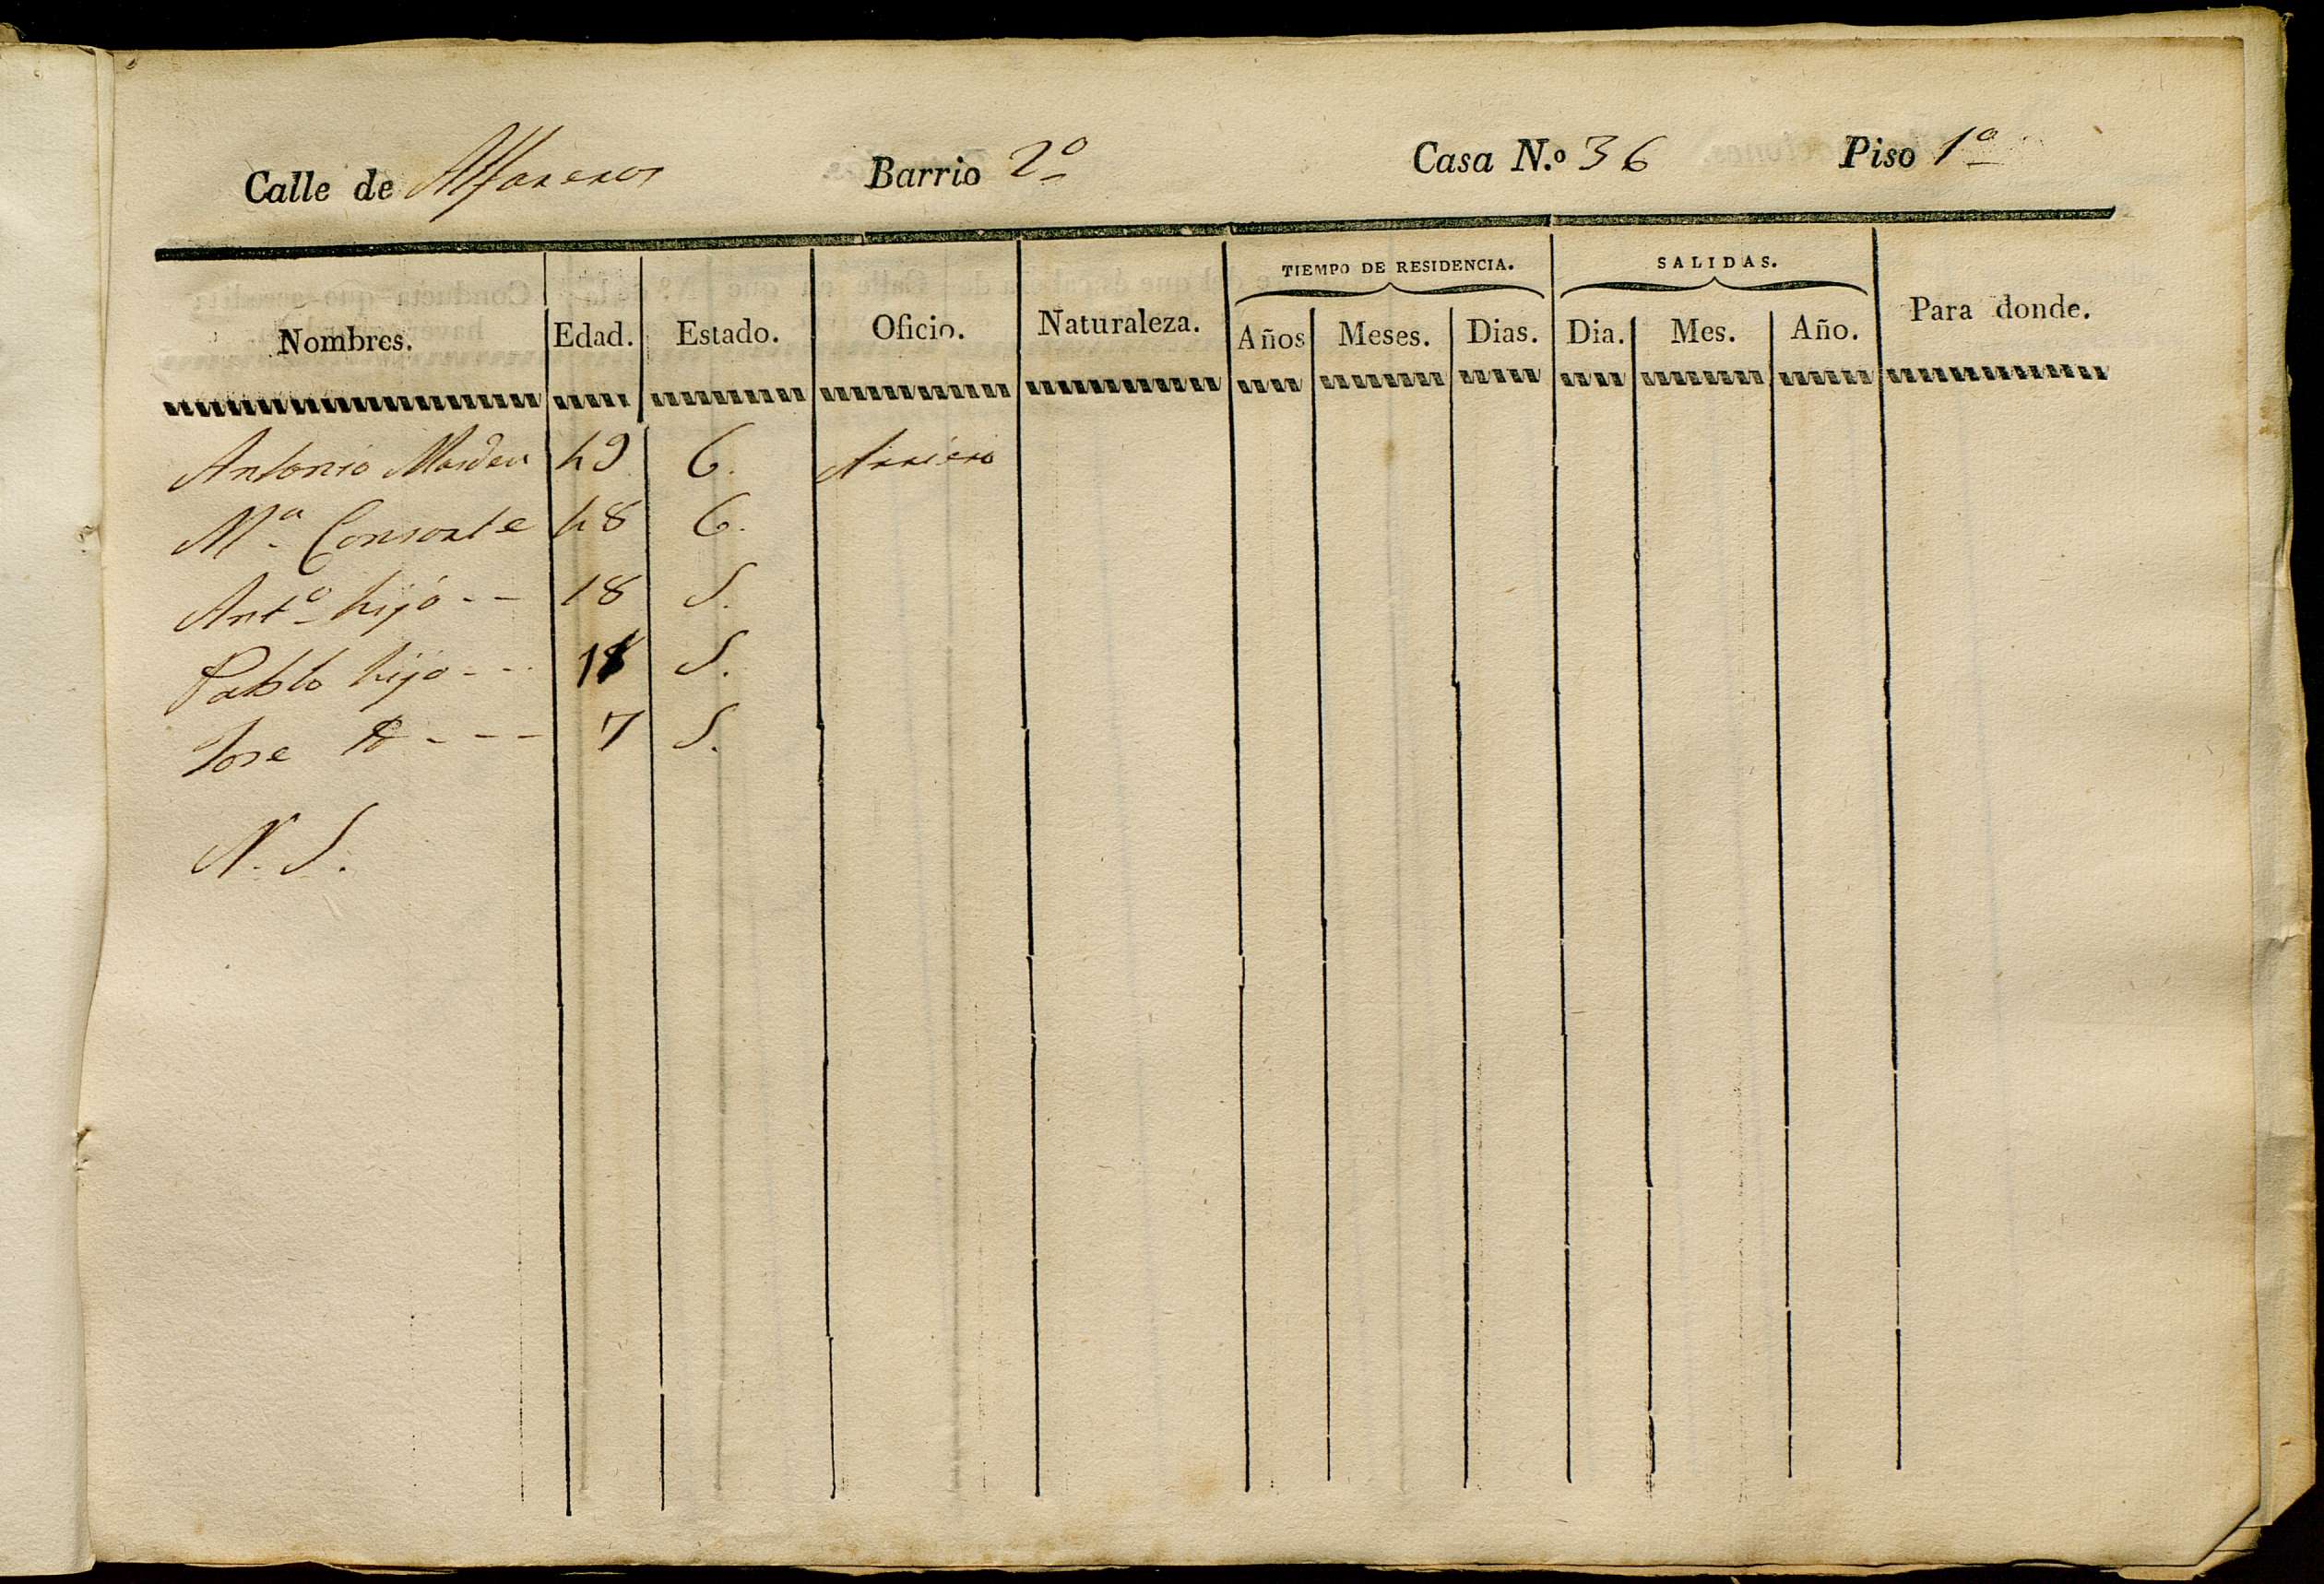 Calle de Alfareros Barrio 2º Casa N.º 36 Piso 1º
TIEMPO DE RESIDENCIA. SALIDAS.
Nombres. Edad. Estado. Oficio. Naturaleza. Años Meses. Dias. Dia. Mes. Año. Para donde.
Antonio 49 C. Arriero
Mª Consorte 48 C.
Antº hijo -- 18 S.
Pablo hijo --- S.
Jose --- 7 S.
N. S.